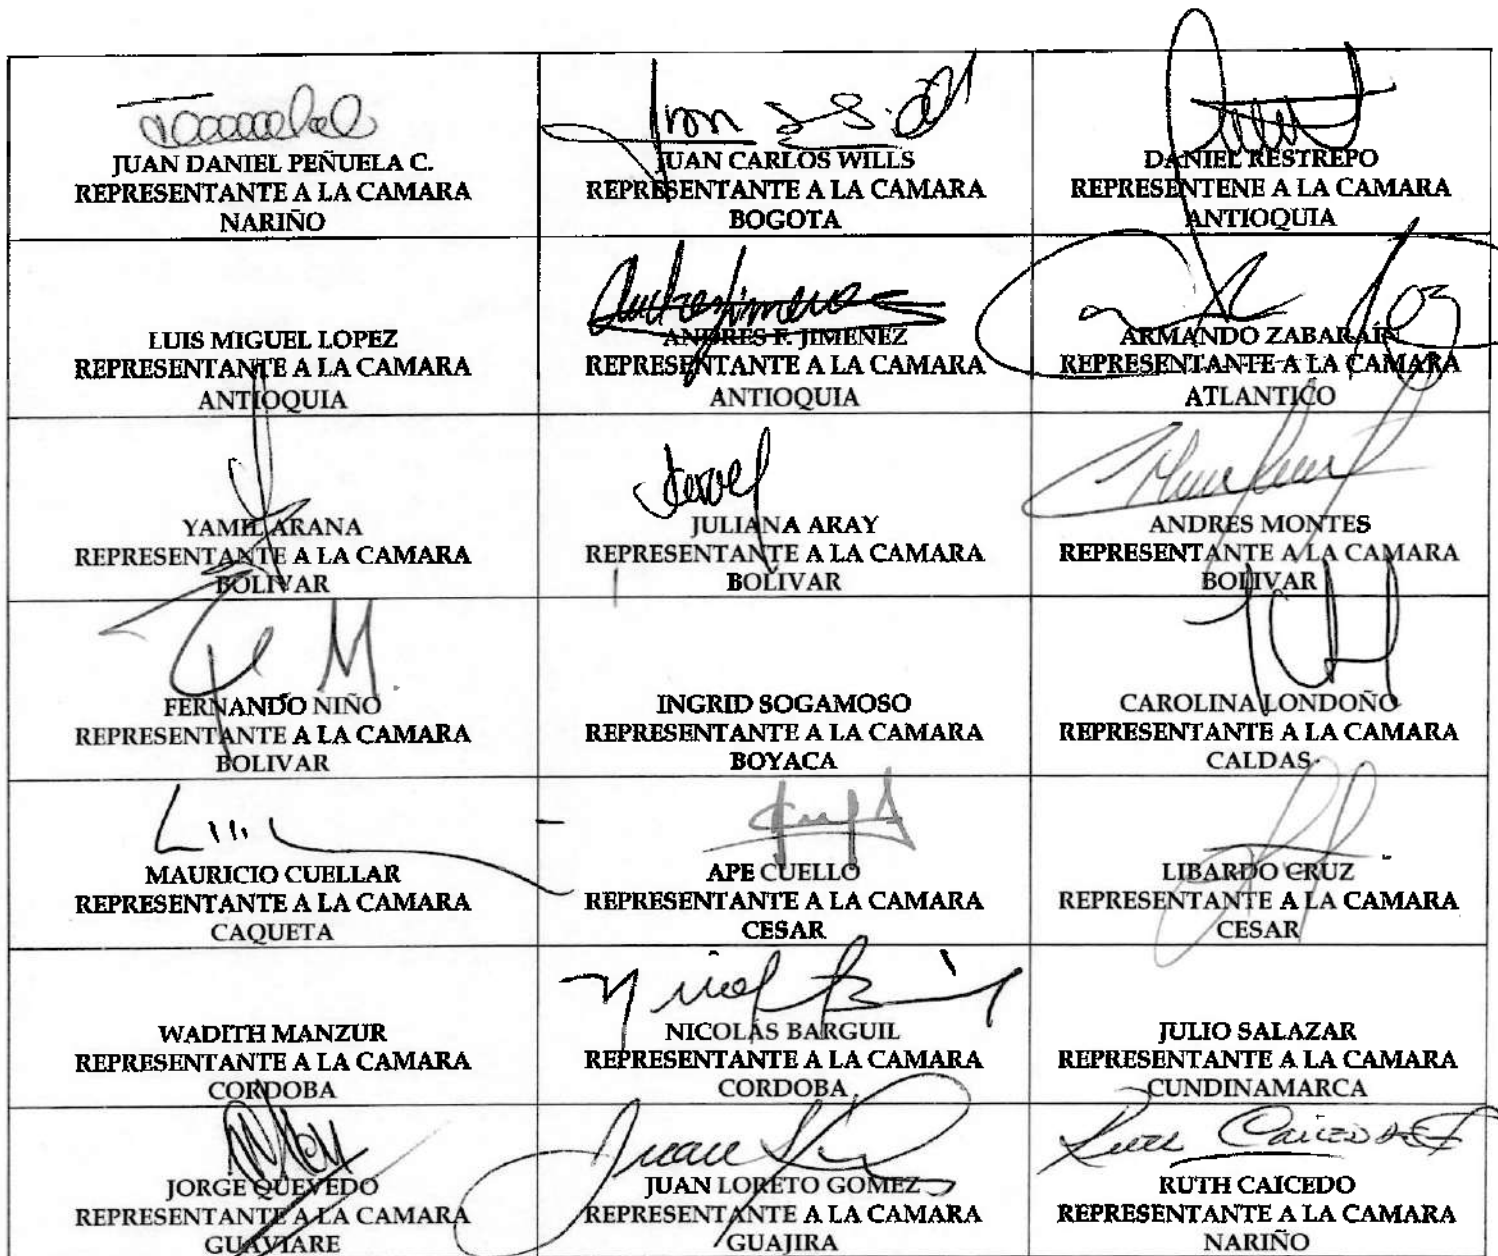 JUAN DANIEL PEÑUELA C.
REPRESENTANTE A LA CAMARA
NARIÑO
JUAN CARLOS WILLS
REPRESENTANTE A LA CAMARA
BOGOTA
DANIEL RESTREPO
REPRESENTENE A LA CAMARA
ANTIOQUIA
LUIS MIGUEL LOPEZ
REPRESENTANTE A LA CAMARA
ANTIOQUIA
Andres Jimenez
ANDRES F. JIMENEZ
REPRESENTANTE A LA CAMARA
ANTIOQUIA
ARMANDO ZABARAÍN
REPRESENTANTE A LA CAMARA
ATLANTICO
YAMIL ARANA
REPRESENTANTE A LA CAMARA
BOLIVAR
JULIANA ARAY
REPRESENTANTE A LA CAMARA
BOLIVAR
ANDRES MONTES
REPRESENTANTE A LA CAMARA
BOLIVAR
FERNANDO NIÑO
REPRESENTANTE A LA CAMARA
BOLIVAR
INGRID SOGAMOSO
REPRESENTANTE A LA CAMARA
BOYACA
CAROLINA LONDOÑO
REPRESENTANTE A LA CAMARA
CALDAS
MAURICIO CUELLAR
REPRESENTANTE A LA CAMARA
CAQUETA
APE CUELLO
REPRESENTANTE A LA CAMARA
CESAR
LIBARDO CRUZ
REPRESENTANTE A LA CAMARA
CESAR
WADITH MANZUR
REPRESENTANTE A LA CAMARA
CORDOBA
NICOLÁS BARGUIL
REPRESENTANTE A LA CAMARA
CORDOBA
JULIO SALAZAR
REPRESENTANTE A LA CAMARA
CUNDINAMARCA
JORGE QUEVEDO
REPRESENTANTE A LA CAMARA
GUAVIARE
JUAN LORETO GOMEZ
REPRESENTANTE A LA CAMARA
GUAJIRA
Ruth Caicedo
RUTH CAICEDO
REPRESENTANTE A LA CAMARA
NARIÑO